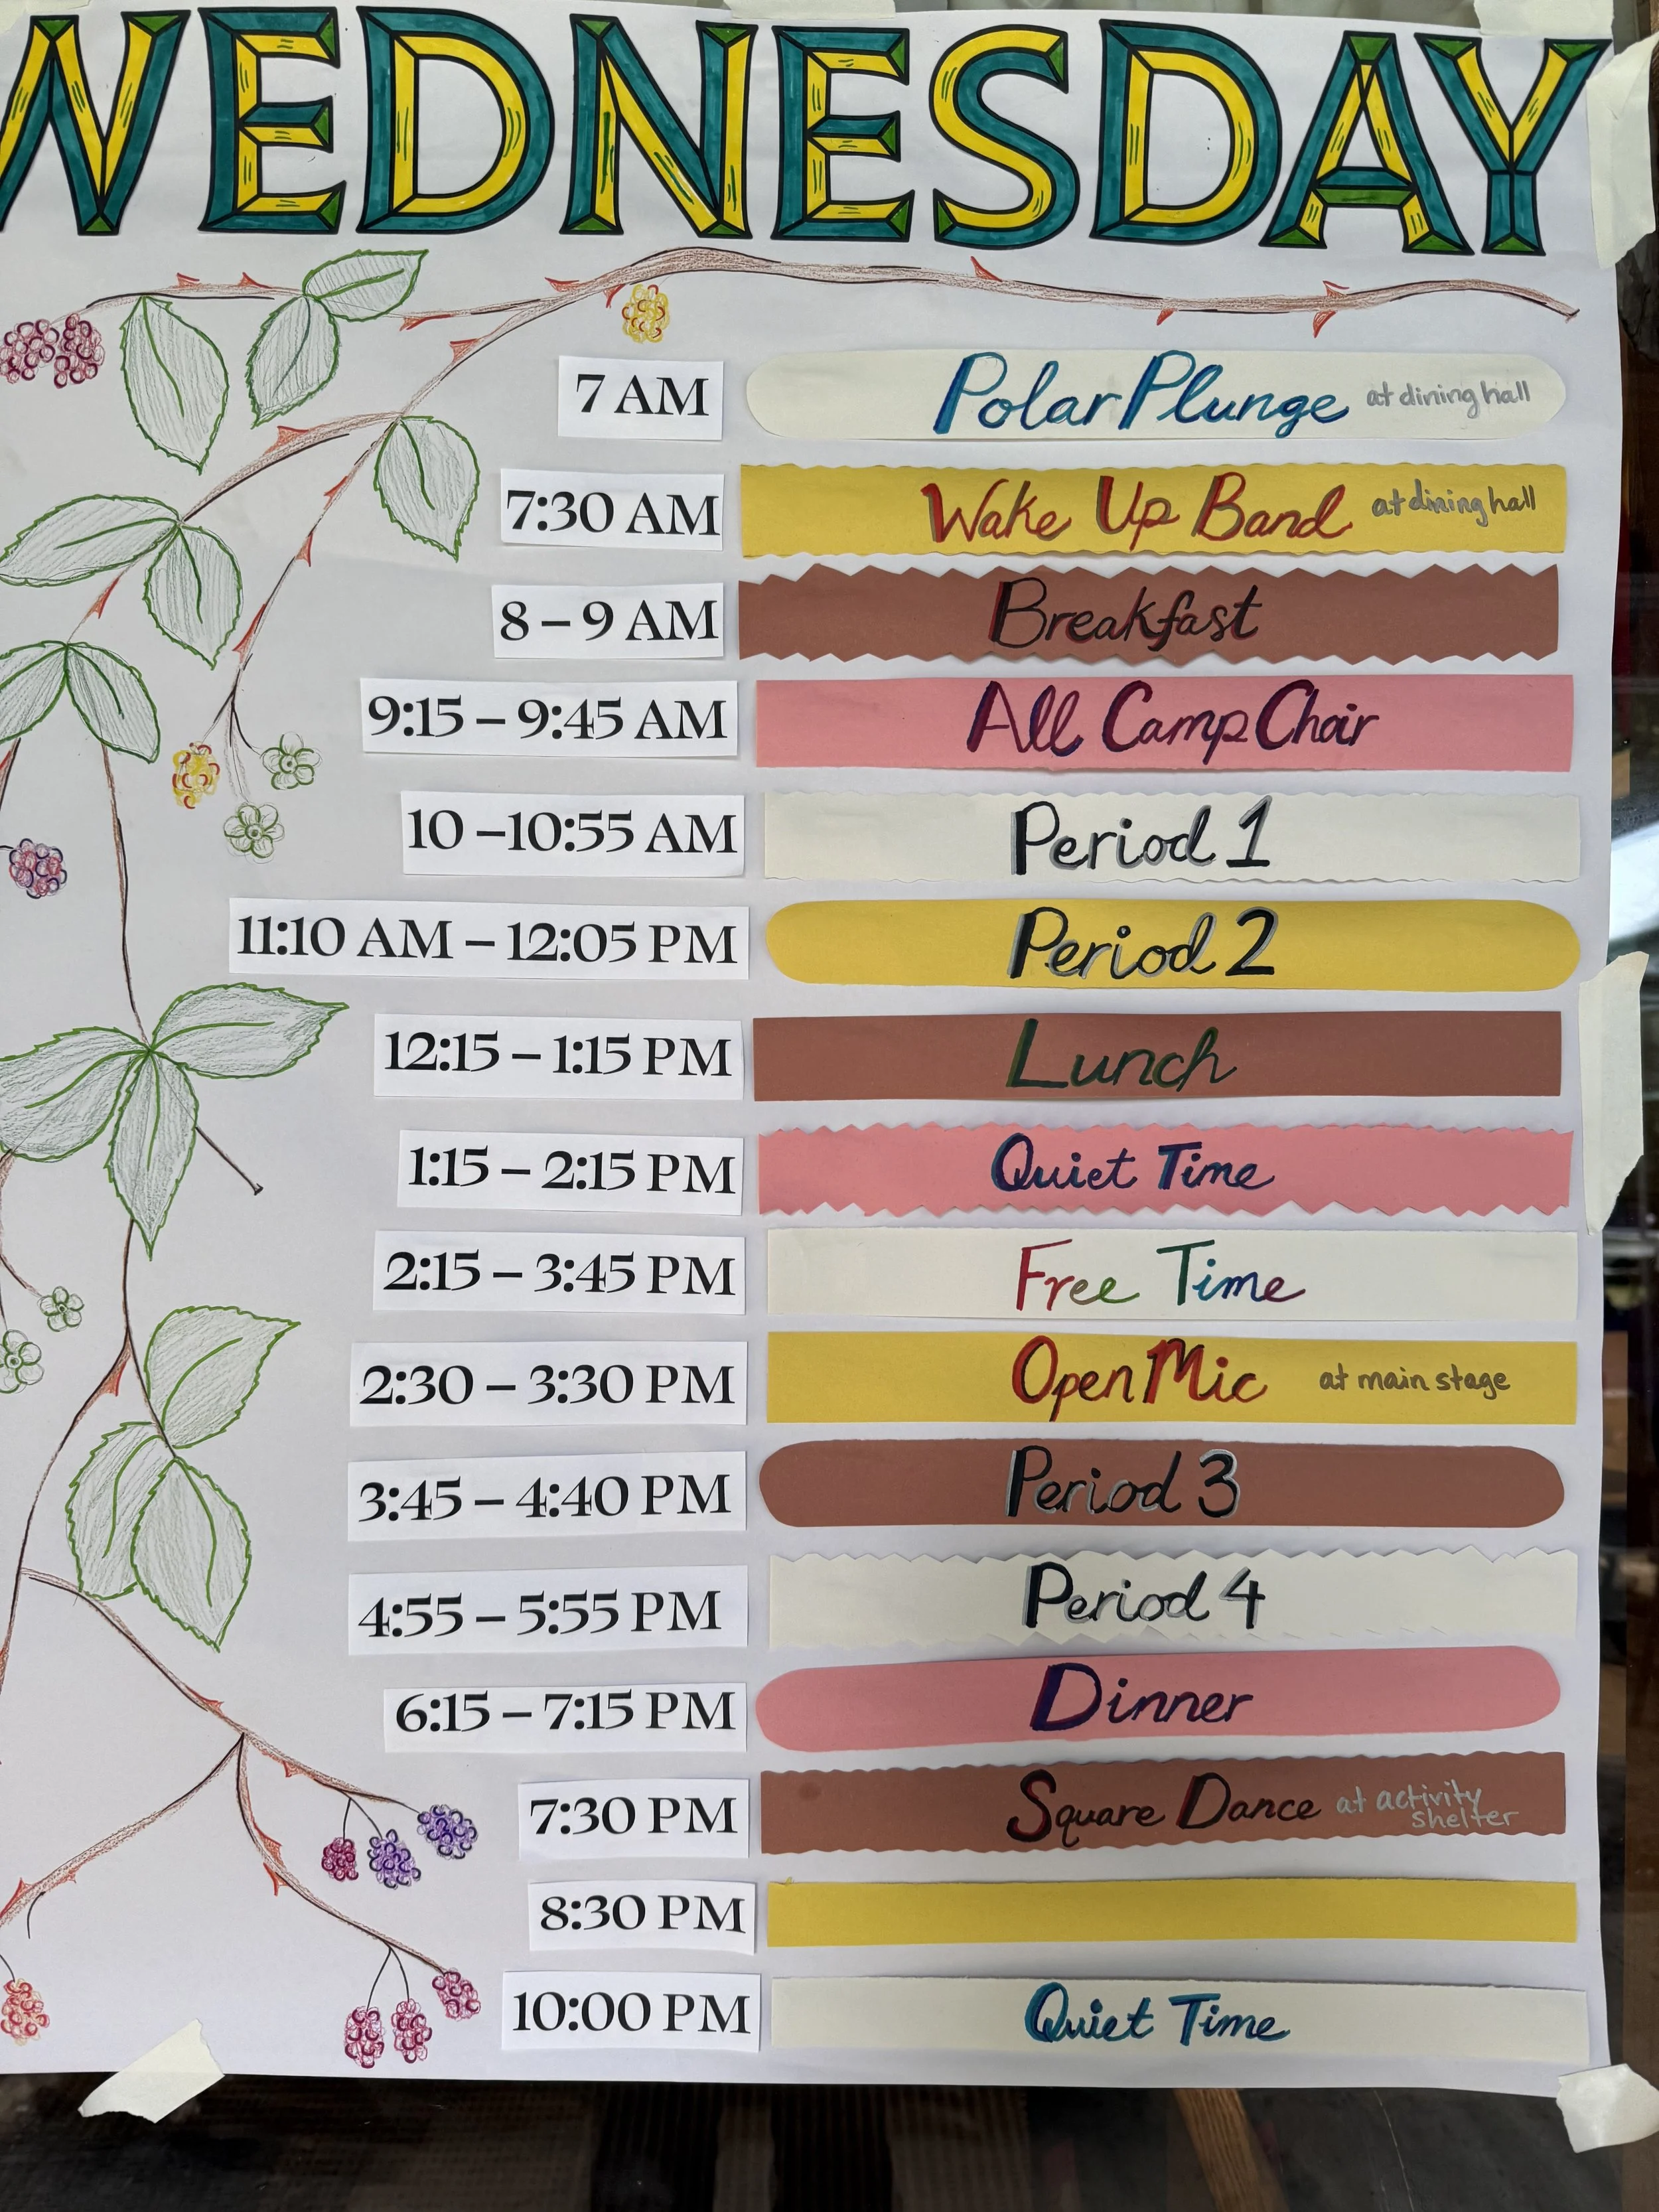 WEDNESDAY
7 AM Polar Plunge at dining hall
7:30 AM Wake Up Band at dining hall
8 – 9 AM Breakfast
9:15 – 9:45 AM All Camp Choir
10 –10:55 AM Period 1
11:10 AM – 12:05 PM Period 2
12:15 – 1:15 PM Lunch
1:15 – 2:15 PM Quiet Time
2:15 – 3:45 PM Free Time
2:30 – 3:30 PM Open Mic at main stage
3:45 – 4:40 PM Period 3
4:55 – 5:55 PM Period 4
6:15 – 7:15 PM Dinner
7:30 PM Square Dance at activity
shelter
8:30 PM
10:00 PM Quiet Time